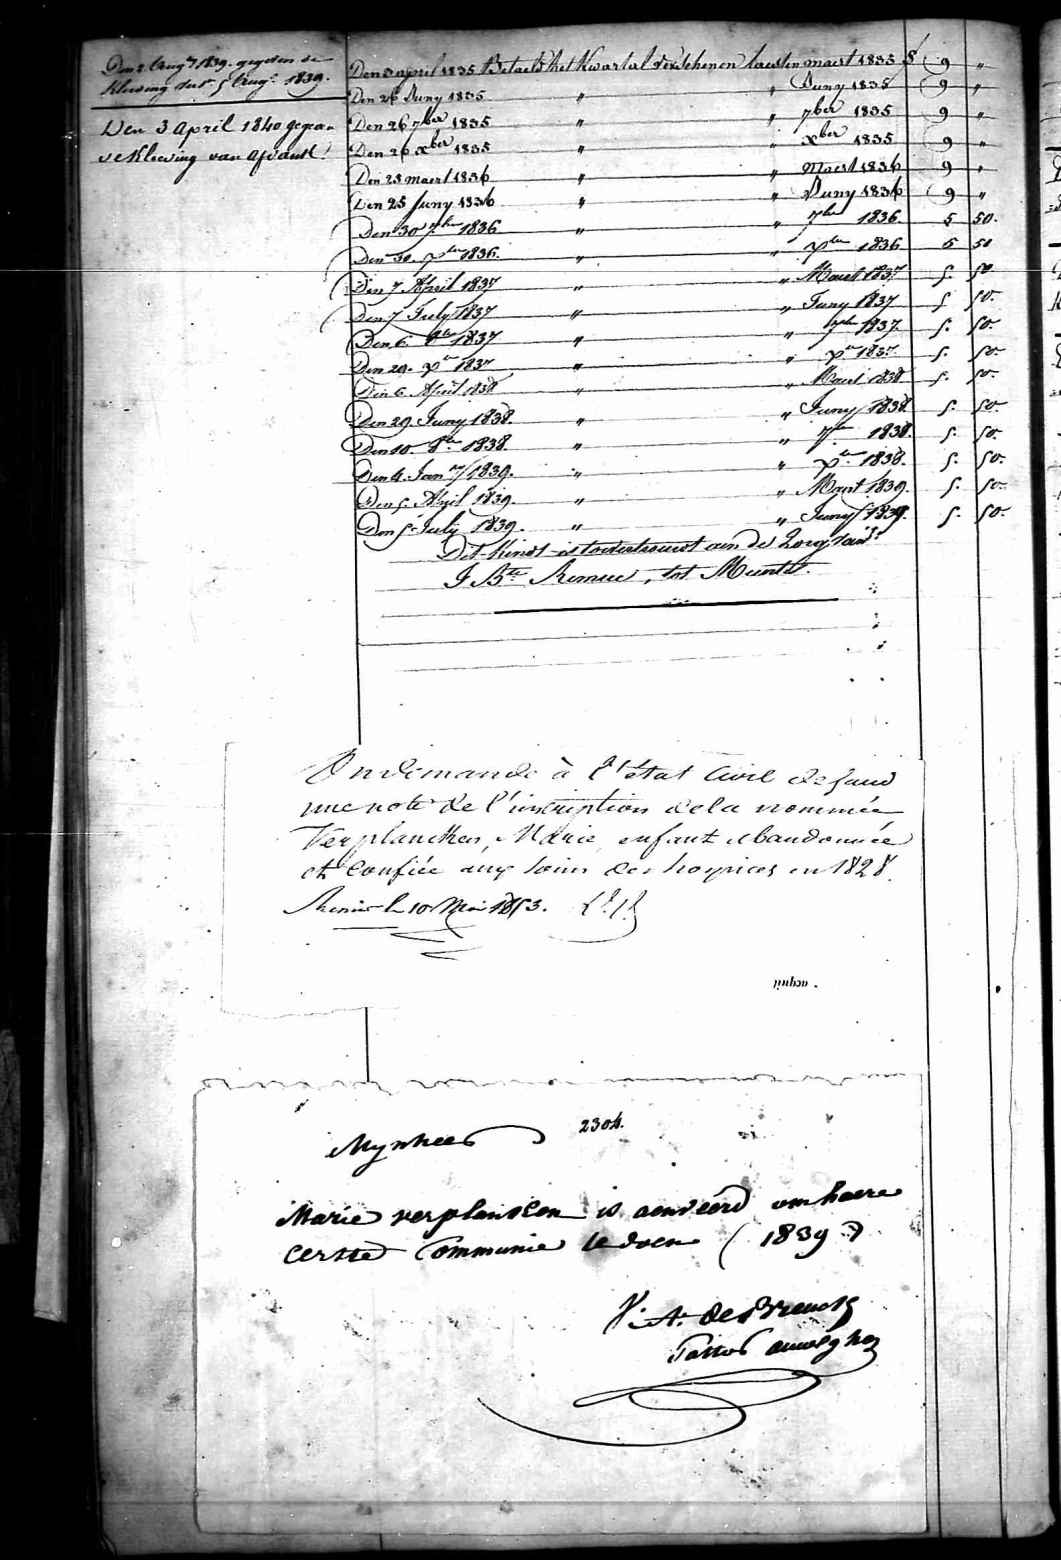 Den 2 Augt 1839. gegeven de
Kleeding
Den 3 April 1840 gegeven
de Kleeding van afgaend!
Den 3 april 1835 Betaelt het Kwartal verschenen laesten maert 1835 f 9 "
Den 26 Juny 1835 " " Juny 1835 9 "
Den 26 7ber 1835 " " 7ber 1835 9 "
Den 26 xber 1835 " " xber 1835 9 "
Den 23 maert 1836 " " Maert 1836 9 "
Den 25 Juny 1836 " " Juny 1836 9 "
Den 30 7ber 1836 " " 7ber 1836 5 50.
Den 30. xber 1836. " " xber 1836 5 50
Den 7 April 1837 " " Maert 1837 5. 50.
Den 7 July 1837 " " Juny 1837 5 50.
Den 6 8ber 1837 " " 7ber 1837 5. 50.
Den 29. xr 1837 " " xr 1837. 5. 50.
Den 6. April 1838 " " Maert 1838 5. 50.
Den 29. Juny 1838. " " Juny 1838. 5. 50.
Den 10. 8ber 1838. " " 7ber 1838. 5. 50.
Den 4. Janry 1839. " " xber 1838. 5. 50.
Den 5. April 1839. " " Maert 1839. 5. 50.
Den 5. July 1839. " " Juny 1839. 5. 50.
Det Kindt is toevertrouwt aen de
J Bte Remue, tot
On demande à l'état Civil de Gand
une note de l'inscription de la nommée
Verplancken, Marie, enfant abandonnée
et confiée aux soins des hospices en 1828.
le 10 Mai 1853.
Mynheer 2304.
Marie verplancken is aenveerd om haere
eerste Communie te doen (1839)